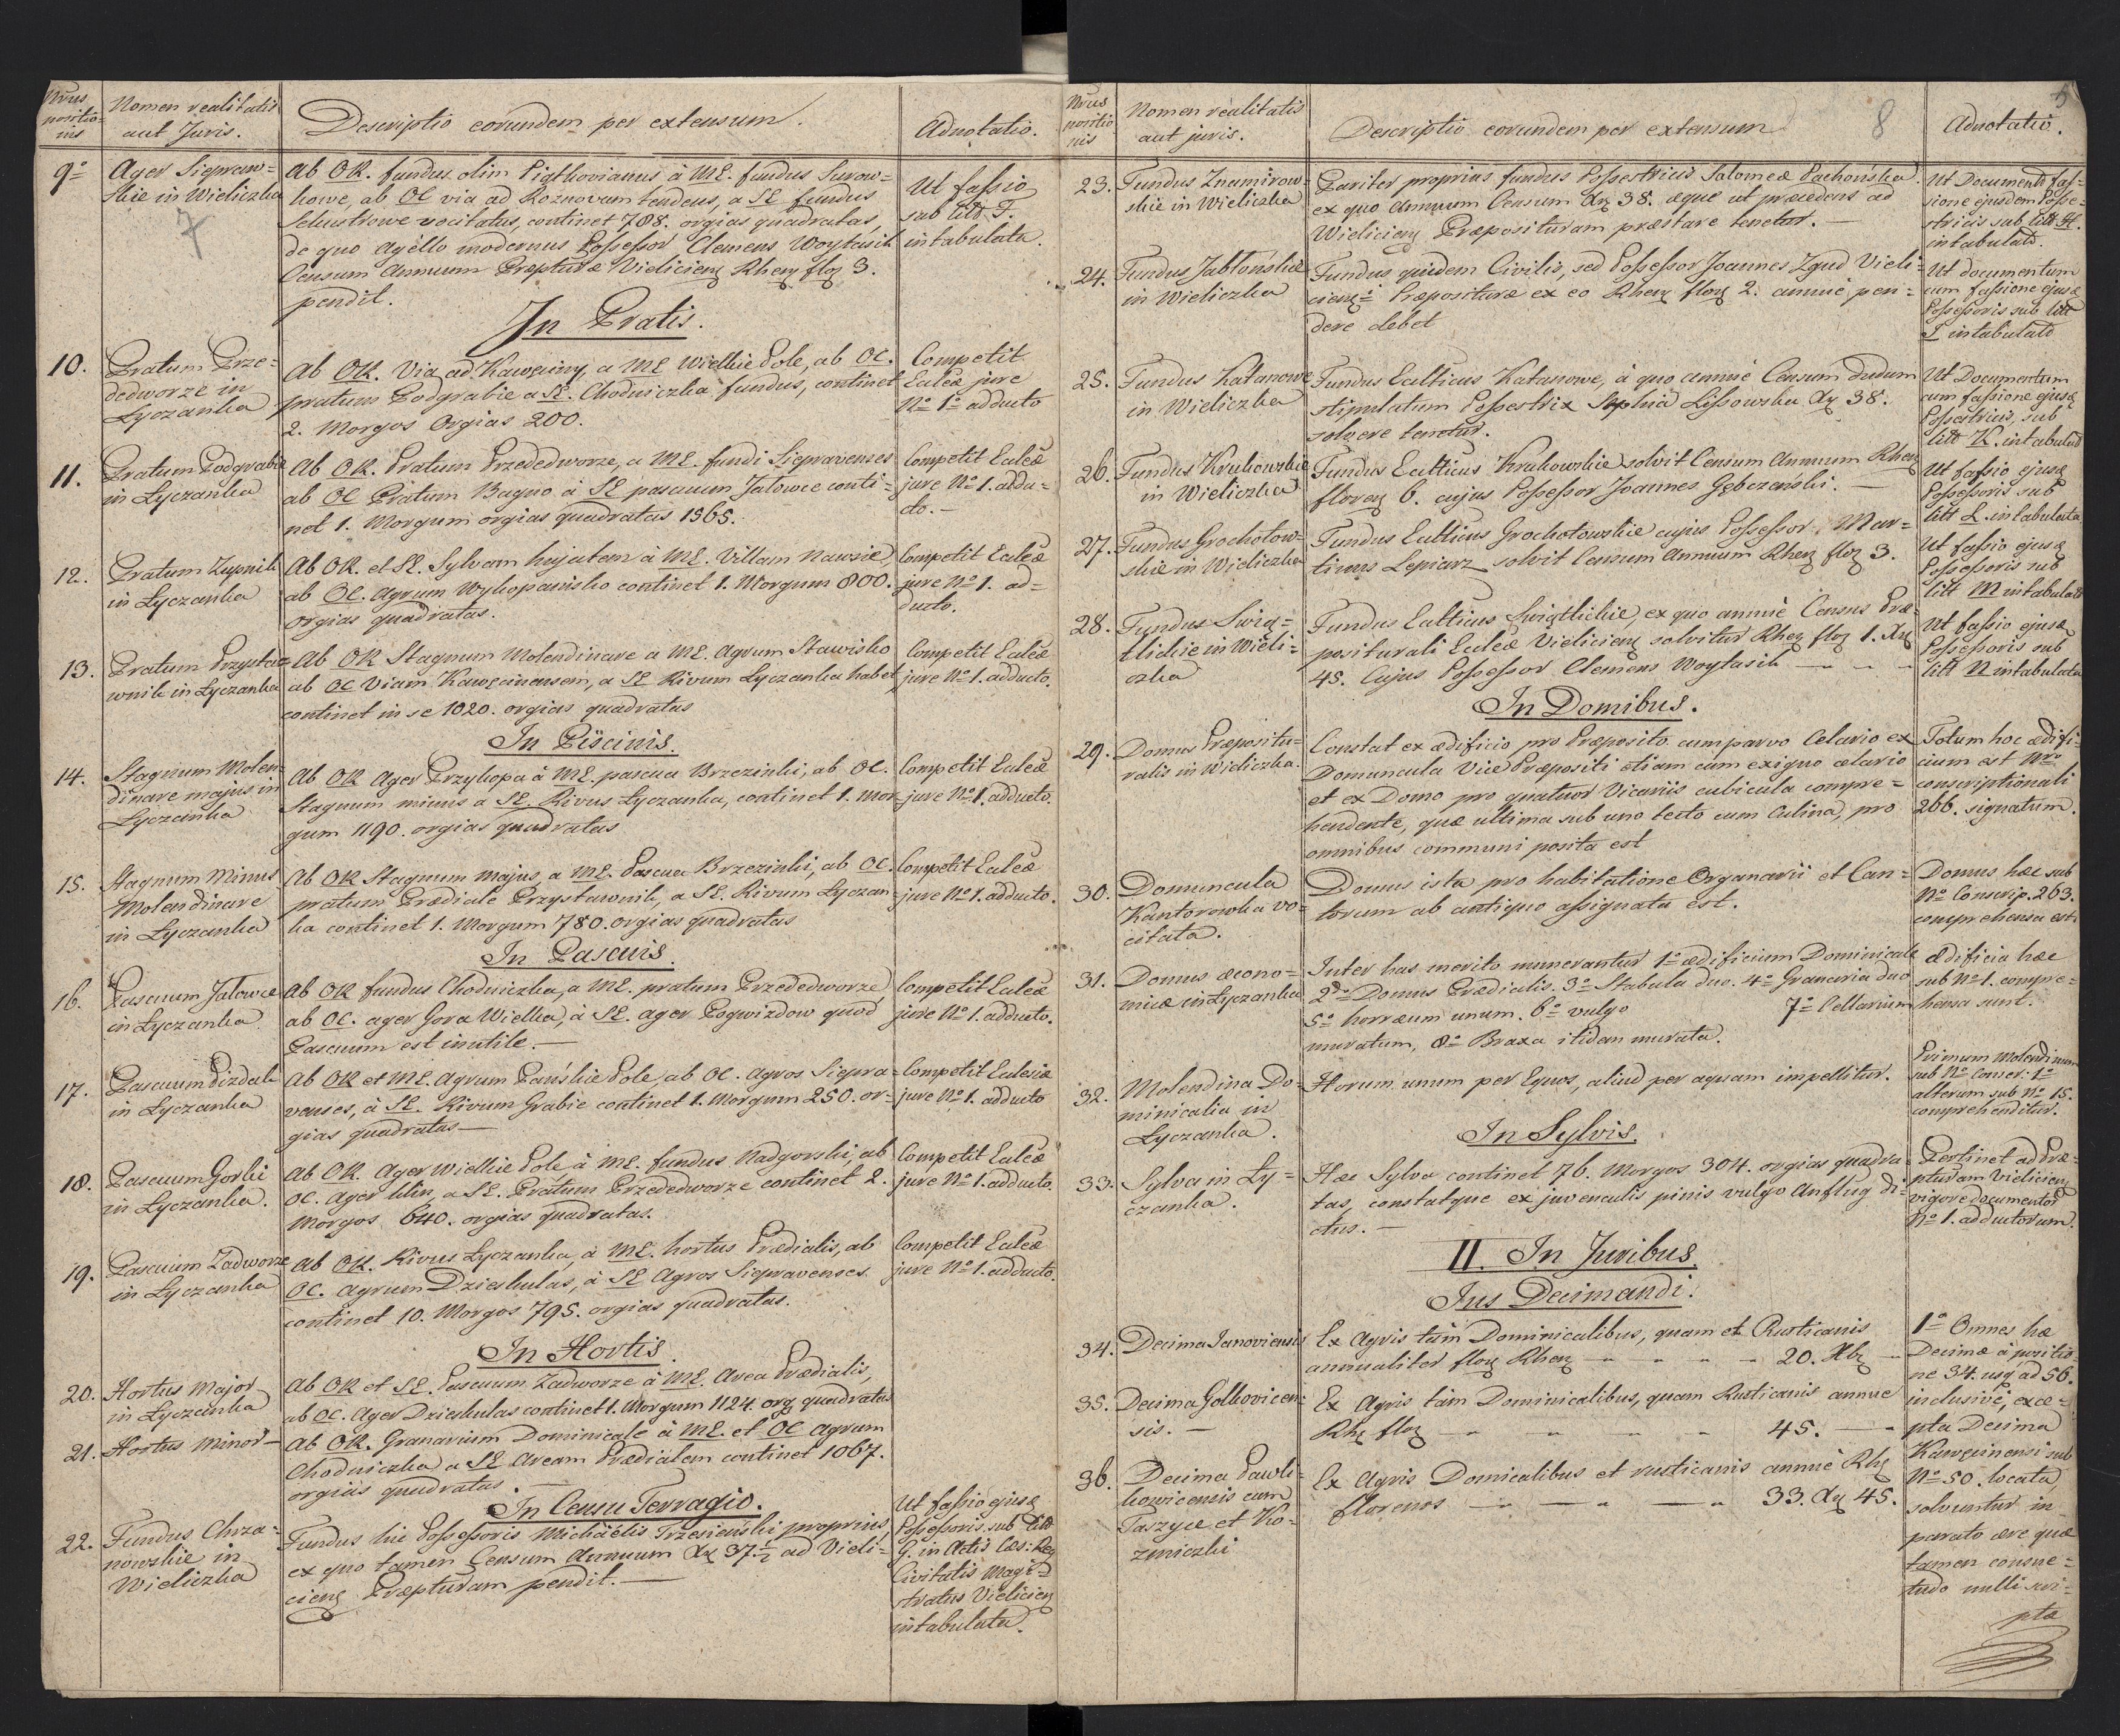 Nrus positionis
Nomen realitatis
aut Juris.
Descriptio eorundem per extensum.
Adnotatio.
7
9o
Ager Siepraw=
skie in Wieliczka
Ab OR. fundus olim Pigthovianus à ME. fundus Surow=
kowe, ab OC via ad Roznovam tendens, a SE fundus
vocitatus, continet 788. orgias quadratas,
de quo agello modernus Possessor Clemens Woytasik
Censum Annuum Præpturæ Vieliciens Rhen flor 3.
pendit.
Ut fassio
sub litt F.
intabulata.
In Pratis.
10.
Pratum Prze=
dedworze in
Lyczanka
Ab OR. Via ad Kawęciny, a ME Wielkie Pole, ab OC.
pratum Podgrabie a SE. Chodniczka fundus, continet
2. Morgos Orgias 200.
Competit
Eccleæ jure
No 1o adducto
11.
Pratum Podgrabie
in Lyczanka
Ab OR. Pratum Przededworze, a ME. fundi Siepravenses
ab OC Pratum Bagno à SE pascuum Jalowce conti=
net 1. Morgum orgias quadratas 1365.
Competit Eccleæ
jure No 1. addu=
cto.—
12.
Pratum Zupnik
in Lyczanka
Ab OR. et SE. Sylvam hujatem à ME. Villam Nawsie,
ab OC. Agrum Wykopanisko continet 1. Morgum 800.
orgias quadratas.
Competit Eccleæ
jure No 1. ad=
ducto.
13.
Pratum Przysta=
wnik in Lyczanka
Ab OR Stagnum Molendinare a ME. Agrum Stawisko
ab OC Viam Kawęcinensem, a SE Rivum Lyczanka habet,
continet in se 1020. orgias quadratas
Competit Eccleæ
jure No 1. adducto.
In Piscinis.
14.
Stagnum Molen=
dinare majus in
Lyczanka
Ab OR Ager Przykopa à ME. pascua Brzezinki, ab OC.
Stagnum minus a SE. Rivus Lyczanka, continet 1. Mor=
gum 1190. orgias quadratas
Competit Eccleæ
jure No 1. adducto.
15.
Stagnum Minus
Molendinare
in Lyczanka
Ab OR Stagnum majus, a ME. Pascua Brzezinki, ab OC.
pratum Prædiale Przystawnik, a SE. Rivum Lyczan=
ka continet 1. Morgum 780. orgias quadratas
Competit Eccleæ
jure No 1. adducto.
In Pascuis.
16.
Pascuum Jalowce
in Lyczanka.
Ab OR fundus Chodniczka, a ME. pratum Przededworze
ab OC. ager Gora Wielka, à SE. ager Pogwizdow quod
Pascuum est inutile.—
Competit Eccleæ
jure No 1. adducto.
17.
Pascuum Pizdala
in Lyczanka
Ab OR et ME. Agrum Pańskie Pole, ab OC. Agros Siepra=
venses, à SE. Rivum Grabie continet 1. Morgum 250. or=
gias quadratas—
Competit Eclesiæ
jure No 1. adducto
18.
Pascuum Gorki
in Lyczanka.
Ab OR. Ager Wielkie Pole à ME. fundus Nadgorski, ab
OC. Ager Klin, a SE. Pratum Przededworze continet 2.
Morgos 640. orgias quadratas.
Competit Eccleæ
jure No 1. adducto
19.
Pascuum Zadworze
in Lyczanka
Ab OR. Rivus Lyczanka, à ME. hortus Prædialis, ab
OC. agrum Dzieskulas, à SE Agros Siepravenses
continet 10. Morgos 795. orgias quadratas.
Competit Eccleæ
jure No 1. adducto.
In Hortis.
20.
Hortus Major
in Lyczanka
Ab OR et SE. Pascuum Zadworze à ME. Area Prædialis,
ab OC. Ager Dzieskulas continet 1. Morgum 1124. org quadratas
21.
Hortus Minor—
Ab OR. Granarium Dominicale à ME. et OC Agrum
Chodniczka a SE Aream Prædialem continet 1067.
orgias quadratas.—
In Censu Terragio.
22.
Fundus Chrza=
nowskie in
Wieliczka
Fundus hic Possessoris Michäelis Trzesienski proprius,
ex quo tamen Censum Annuum Xr 37 1/2 ad Vieli=
ciens Præpturam pendit.—
Ut fassio ejusq
Possessoris sub litt
G. in Actis Cæs: Reg
Civitatis Magi=
stratus Vieliciens
intabulata.
Nrus
positio
nis
Nomen realitatis
aut juris.
Descriptio eorundem per extensum
8
Adnotatio.
5
23.
Fundus Znamirow=
skie in Wieliczka
Pariter proprius fundus Possestricis Salomeæ Pachońska.
ex quo Annuum Censum Xr 38. æque ut præcedens ad
Wieliciens Præposituram præstare tenetur.—
Ut Documentũ fas=
sione ejusdem Posse=
stricis sub litt H.
intabulatũ.
24.
Fundus Jabłońskie
in Wieliczka
Fundus quidem Civilis, sed Possessor Joannes Zgud Vieli=
ciens Præposituræ ex eo Rhen flor 2. annue pen=
dere debet
Ut documentum
cum fassione ejusq
Possessoris sub litt
I intabulatũ
25.
Fundus Katanowe
in Wieliczka
Fundus Eccltticus Katanowe, à quo annuè Censum dudum
stipulatum Possestrix Sophia Lissowska Xr 38.
solvere tenetur.
Ut Documentum
cum fassione ejusq
Possestricis, sub
litt K. intabulatũ
26.
Fundus Krukowskie
in Wieliczka
Fundus Eccltticus Krukowskie solvit Censum Annuum Rhen
floren 6. cujus Possessor Joannes Gębczanski.—
Ut fassio ejusq
Possessoris sub
litt L. intabulata
27.
Fundus Grochotow=
skie in Wieliczka
Fundus Eccltticus Grochotowskie cujus Possessor Mar=
tinus Lepiarz solvit Censum Annuum Rhen flor 3.
Ut fassio ejusq
Possessoris sub
litt M intabulata
28.
Fundus Swią=
tlickie in Wieli=
czka
Fundus Eccltticus Swiątlickie, ex quo annuè Census Præ=
positurali Eccleæ Vieliciens solvitur Rhen flor 1. Xr
45. Cujus Possessor Clemens Woytasik
Ut fassio ejusq
Possessoris sub
litt N intabulata
In Domibus.
29.
Domus Præpositu=
ralis in Wieliczka.
Constat ex ædificio pro Præposito cum parvo Celario ex
Domuncula Vice Præpositi etiam cum exiguo celario
et ex Domo pro quatuor Vicariis cubicula compre=
hendente, quæ ultima sub uno tecto cum Culina, pro
omnibus communi posita est
Totum hoc ædifi=
cium est Nro
conscriptionali
266. signatum.
30.
Domuncula
Kantorowka vo=
citata.
Domus ista pro habitatione Organarii et Can=
torum ab antiquo assignata est.
Domus hæc sub
No Conscrip. 263.
comprehensa est.
31.
Domus æcono=
micæ in Lyczanka
Inter has merito numerantur 1o ædificium Dominicale
2do Domus Prædialis. 3o Stabula duo. 4o Granaria duo
5o horræum unum. 6o vulgo 7o Cellarium
muratum, 8o Braxa itidem murata.
ædificia hæc
sub No 1. compre=
hensa sunt.
32.
Molendina Do=
minicalia in
Lyczanka.
Horum unum per Equos, aliud per aquam impellitur.
Primum Molendinum
sub No Conscr: 1o
alterum sub No 15.
comprehenditur.
In Sylvis.
33.
Sylva in Ly=
czanka.
Hæc Sylva continet 76. Morgos 304. orgias quadra=
tas, constatque ex juvenculis pinis vulgo Anflug di=
ctus.—
Pertinet ad Præ=
pturam Vieliciens
vigore documentor
No 1. adductorum.
II. In Juribus.
Jus Decimandi.
34.
Decima Janoviensis
Ex Agris tàm Dominicalibus, quam et Rusticanis
annualiter flor Rhen 20. Xbr
1o Omnes hæ
Decimæ à positio=
ne 34. usq ad 56.
inclusivè, exce=
pta Decima
Kawęcinensi sub
No 50. locata,
solvuntur in
parato ære quæ
tamen consue=
tudo nulli scri=
ptæ
35.
Decima Golkovicen=
sis.—
Ex Agris tàm Dominicalibus, quam Rusticanis annue
Rhs flor 45.
36.
Decima Pawli=
kowicensis cum
Taszyce et Ko=
zmiczki
Ex Agris Domicalibus et rusticanis annuè Rhs
florenos 33. Xr 45.